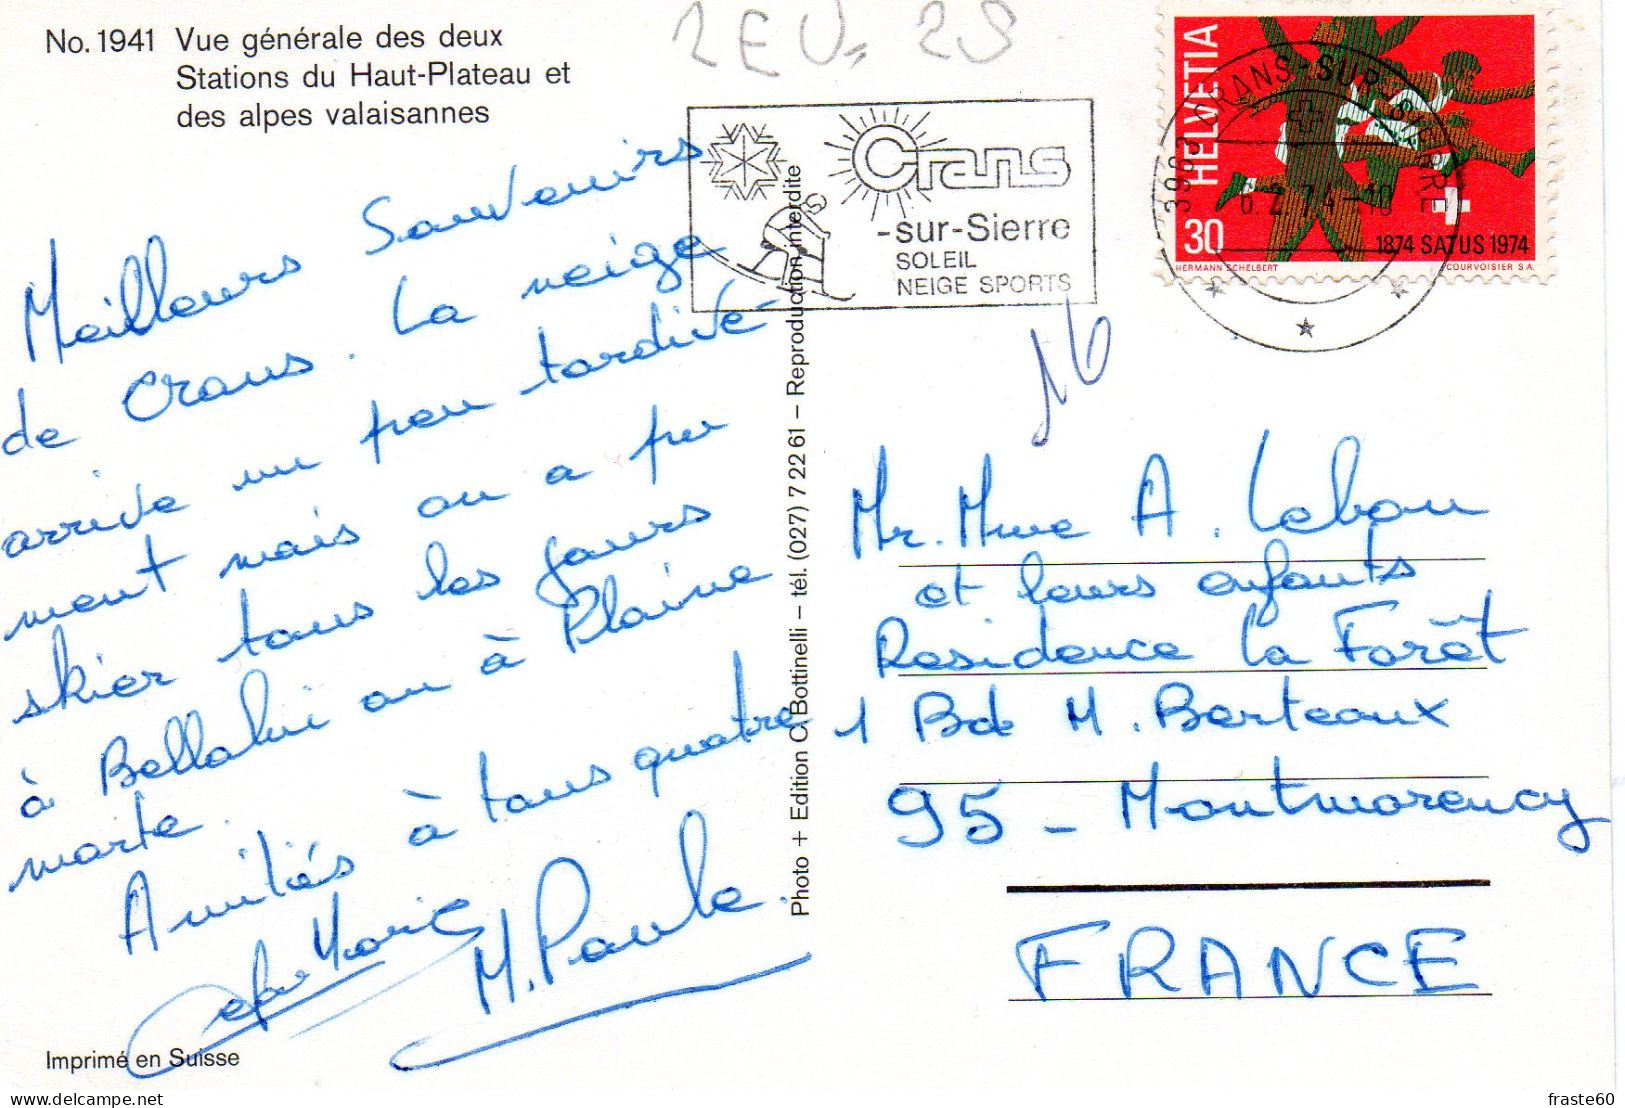 No. 1941 Vue générale des deux
Stations du Haut-Plateau et
des alpes valaisannes
2 EU, 2S
Crans
-sur-Sierre
SOLEIL
NEIGE SPORTS
HELVETIA
30
1874 SATUS 1974
HERMANN SCHELBERT
COURVOISIER S.A.
3963 CRANS-SUR-SIERRE
6.2.74-18
16
Meilleurs Souvenirs
de Crans. La neige
arrive un peu tardive-
ment mais on a pu
skier tous les jours
à Bellalui ou à Plaine
morte.
Amitiés à tous quatre
Marie
M. Paule.
Imprimé en Suisse
Photo + Edition C. Bottinelli – tél. (027) 7 22 61 – Reproduction interdite
Mr. Mme A. Lebon
et leurs enfants
Résidence La Forêt
1 Bd M. Berteaux
95 - Montmorency
FRANCE
fraste60